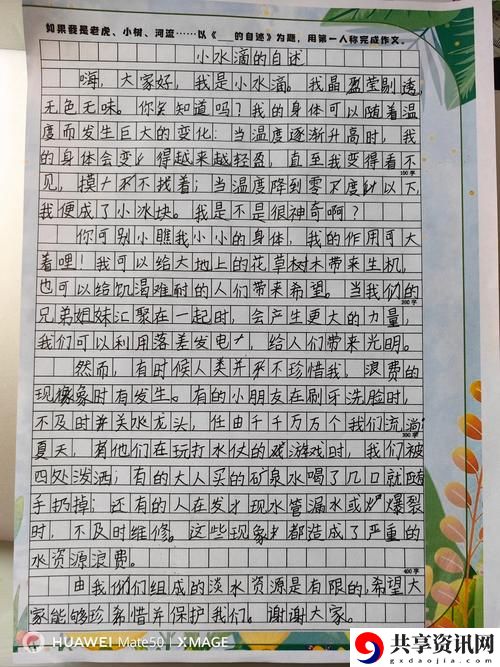 如果我是老虎、小树、河流……以《 的自述》为题，用第一人称完成作文。
小水滴的自述
嗨，大家好，我是小水滴。我晶盈莹剔透，
无色无味。你知道吗？我的身体可以随着温
度而发生巨大的变化：当温度逐渐升高时，我
的身体会变得越来越轻盈，直至我变得看不
见，摸不找着；当温度降到零下度以下，
100字
我便成了小冰块。我是不是很神奇啊？
你可别小瞧我小小的身体，我的作用可大
着哩！我可以给大地上的花草树木带来生机，
也可以给饥渴难耐的人们带来希望。当我们的
200字
兄弟姐妹汇聚在一起时，会产生更大的力量，
我们可以利用落差发电，给人们带来光明。
然而，有时候人类并不珍惜我，浪费的
现象时有发生。有的小朋友在刷牙洗脸时，
不及时关水龙头，任由千千万万个我们流淌
300字
夏天，有他们在玩打水仗的游戏时，我们被
四处泼洒；有的大人买的矿泉水喝了几口就随
手扔掉；还有的人在发现水管漏水或爆裂
时，不及时维修。这些现象都造成了严重的
水资源浪费。
400字
由我们组成的淡水资源是有限的，希望大
家能够珍惜并保护我们。谢谢大家。
HUAWEI Mate50 | XMAGE
共享资讯网
gxdaojia.com